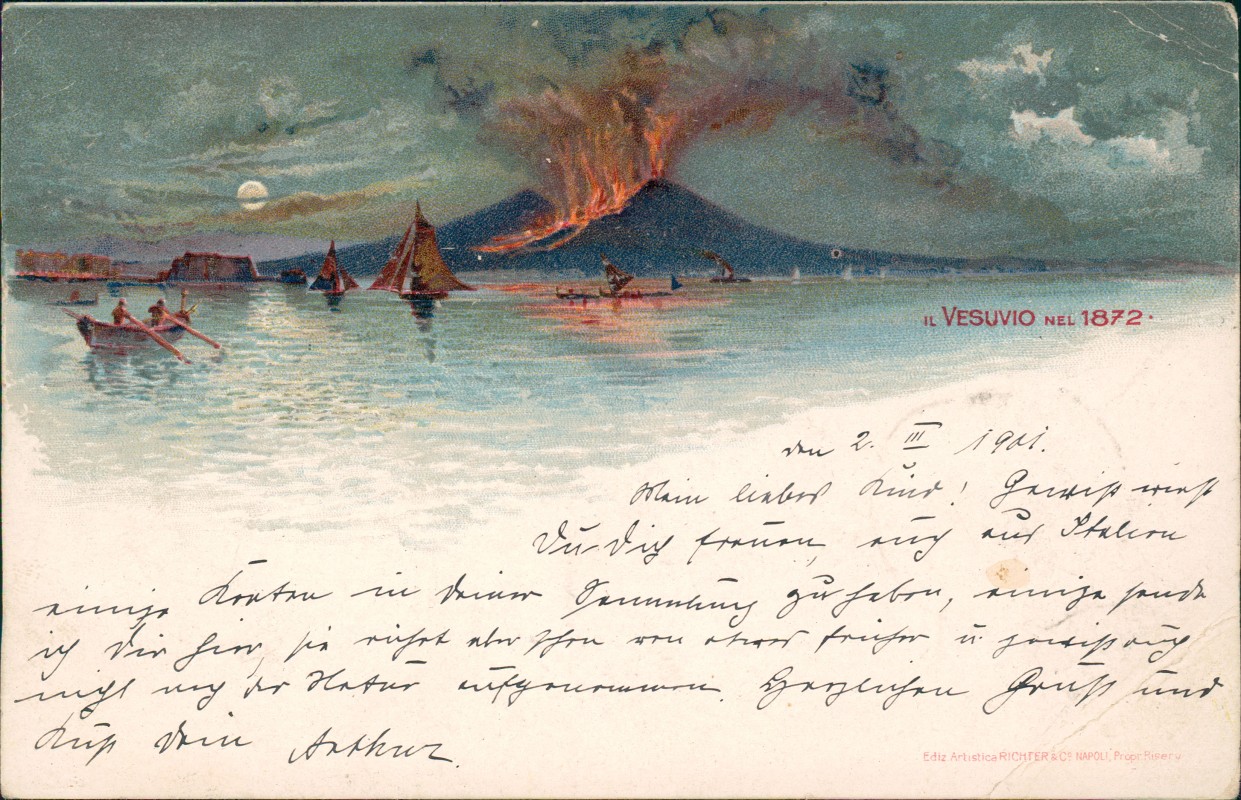 IL VESUVIO NEL 1872.
den 2. III 1901.
Mein liebes Kind! Gewiß wirst
Du Dich freuen, auch aus Italien
einige Karten in Deiner Sammlung zu haben, einige sende
ich Dir hier, sie rührt aber schon von etwas früher u. gewiß auch
nicht nach der Natur aufgenommen. Herzlichen Gruß und
Kuß Dein Arthur.
Ediz. Artistica RICHTER & Cº NAPOLI, Propr. Riserv